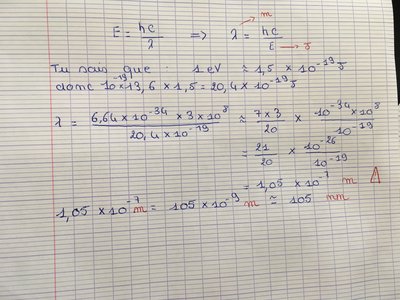 E = hc/λ => λ = hc/E → m → J
Tu sais que : 1 eV ≈ 1,5 × 10^-19 J
donc 10^-19 × 13,6 × 1,5 = 20,4 × 10^-19 J
λ = (6,64 × 10^-34 × 3 × 10^8)/(20,4 × 10^-19) ≈ (7 × 3)/20 × (10^-34 × 10^8)/10^-19
= 21/20 × 10^-26/10^-19
= 1,05 × 10^-7 m
1,05 × 10^-7 m = 105 × 10^-9 m ≃ 105 nm